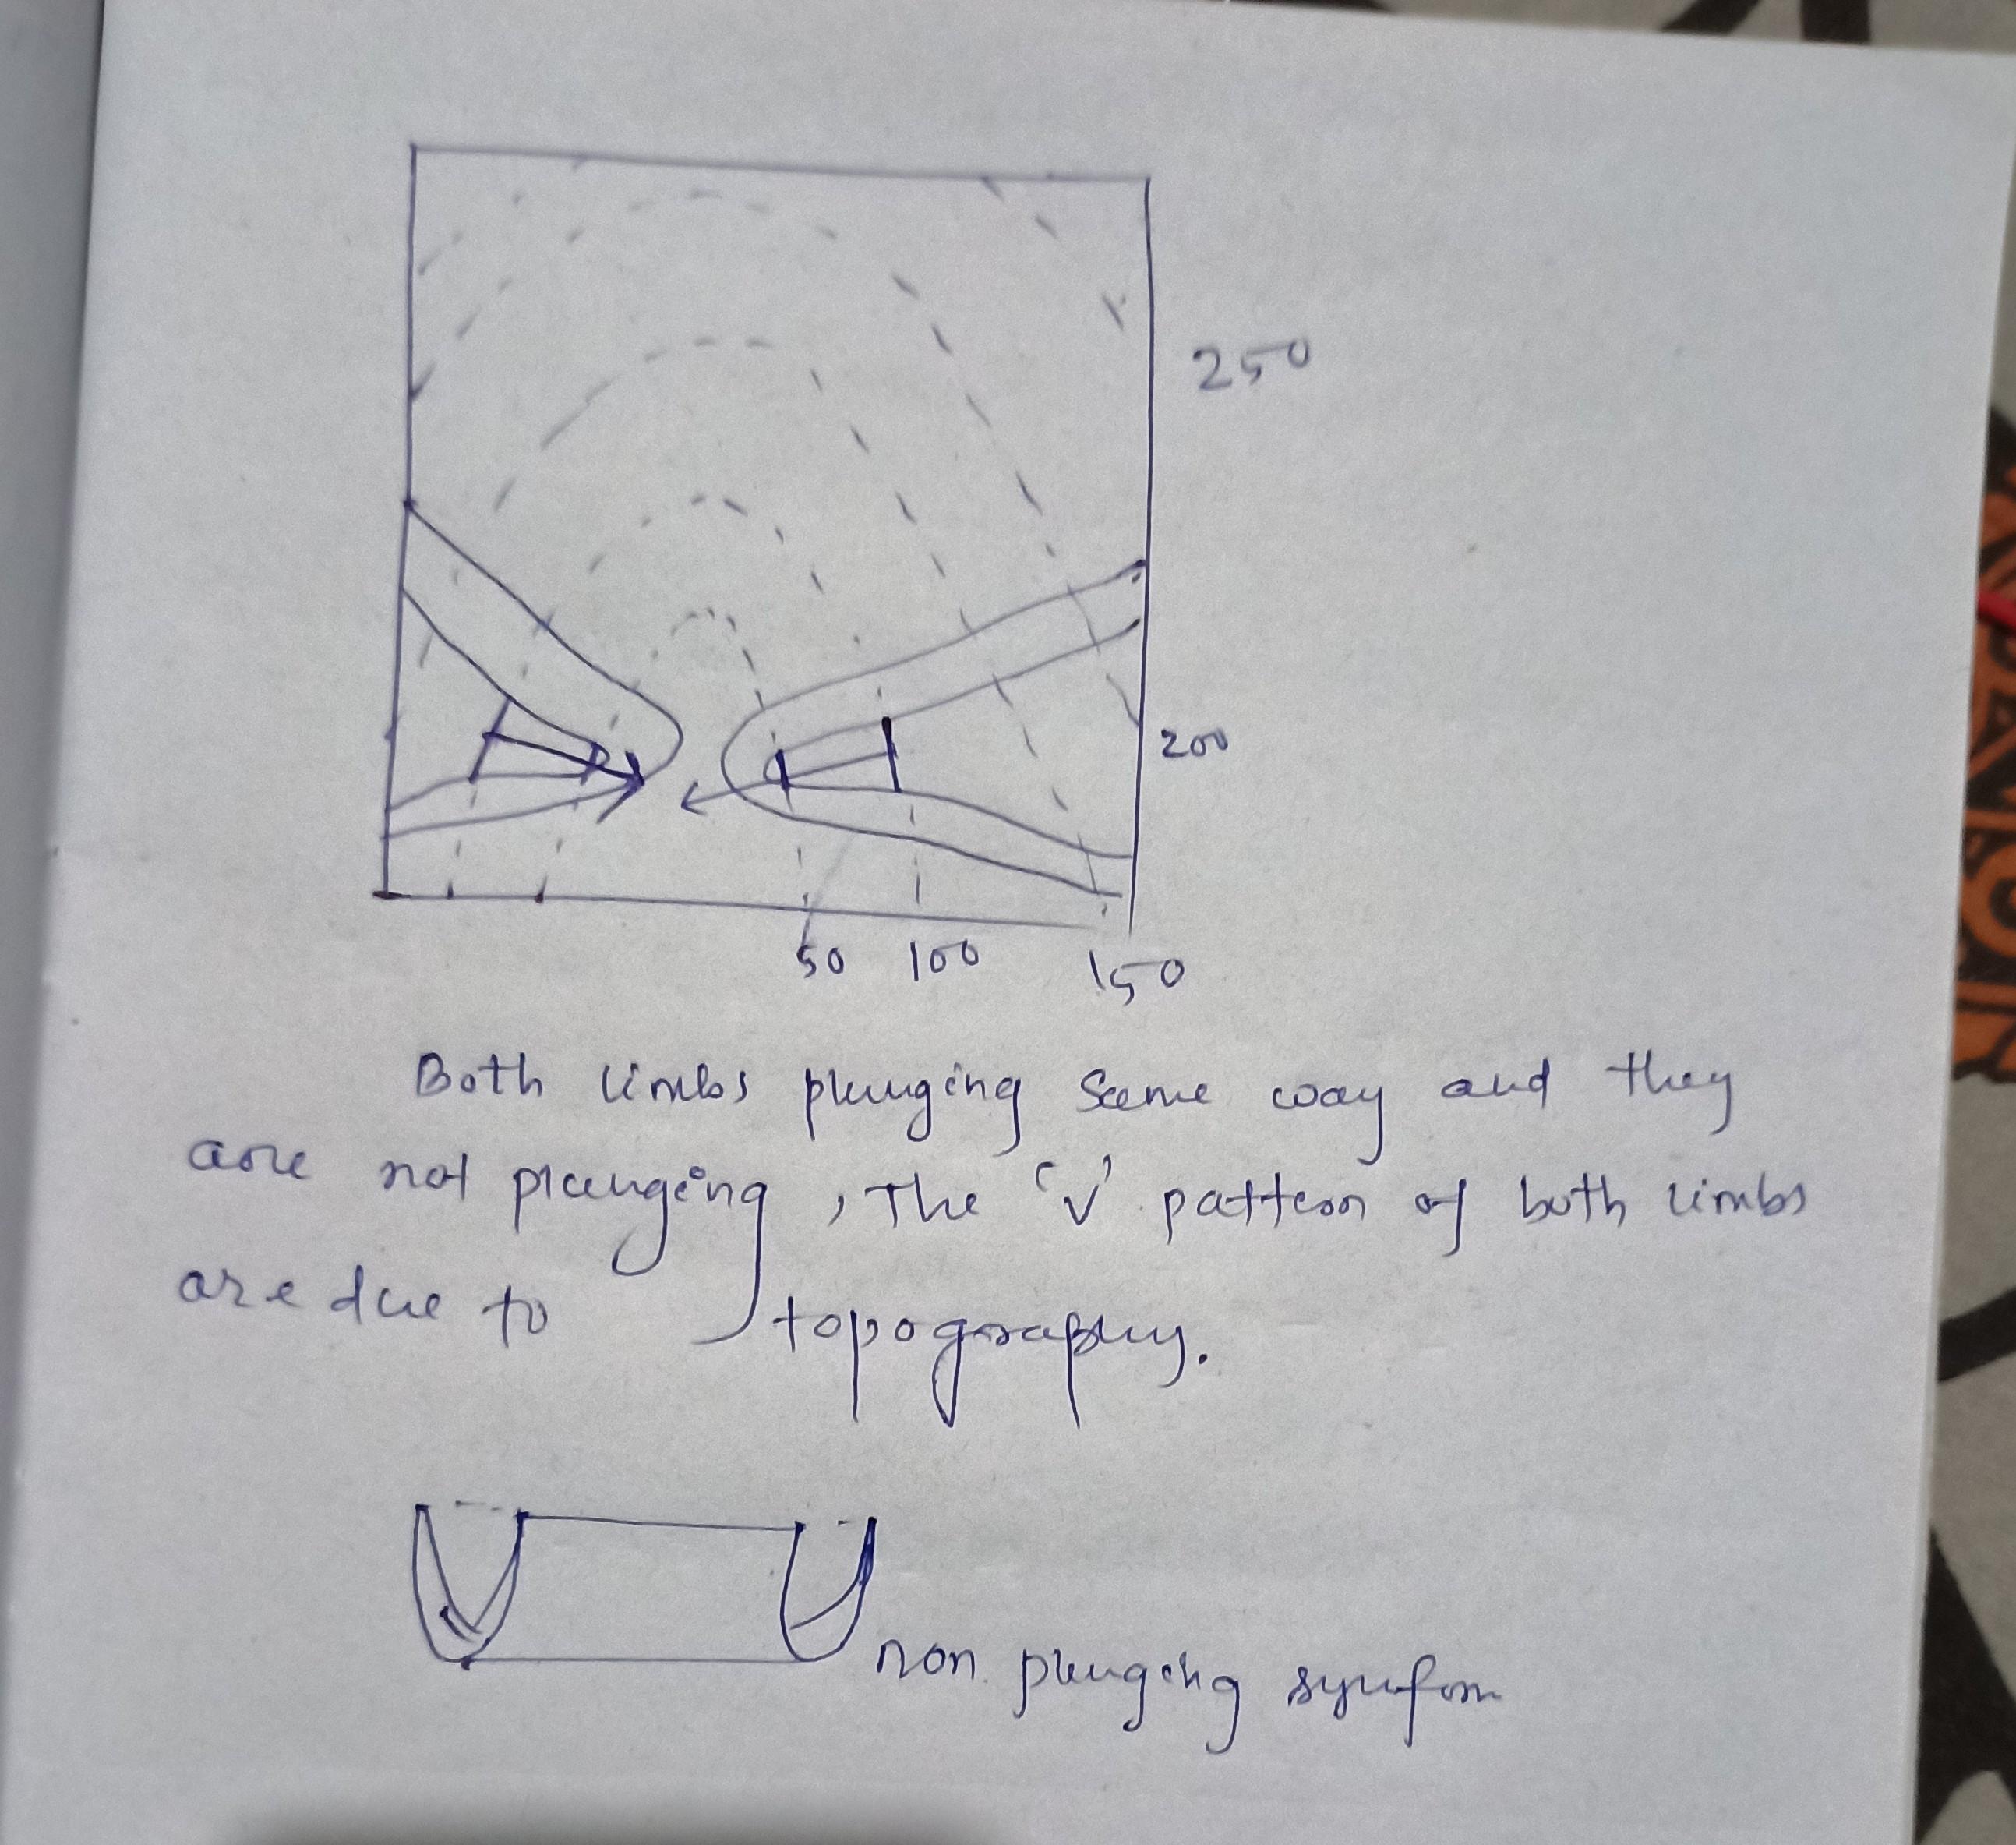 250
200
50 100 150
Both limbs plunging same way and they
are not plunging, The 'v' pattern of both limbs
are due to topography.
non plunging synform